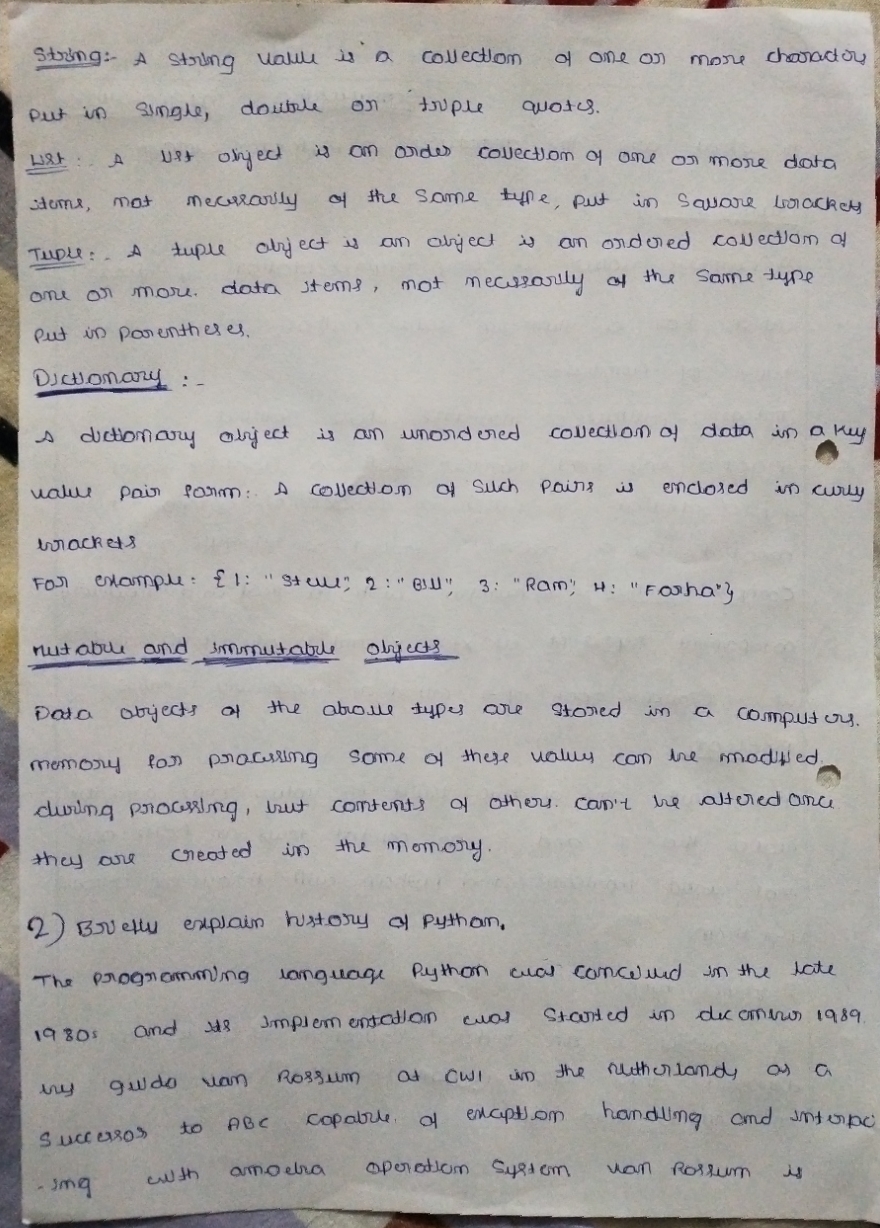 String:- A string value is a collection of one or more characters
put in single, double or triple quotes.
List: A list object is an order collection of one or more data
items, not necessarily of the same type, put in square brackets
Tuple:- A tuple object is an object is an ordered collection of
one or more. data items, not necessarily of the same type
put in parentheses.
Dictionary :-
A dictionary object is an unordered collection of data in a key
value pair form: A collection of such pairs is enclosed in curly
brackets
For example: {1: "Steve", 2: "Bill", 3: "Ram", 4: "Farha"}
mutable and immutable objects
Data objects of the above types are stored in a computers.
memory for processing some of these values can be modified.
during processing, but contents of others. can't be altered once
they are created in the memory.
2) Briefly explain history of Python.
The programming language Python was conceived in the late
1980s and its implementation was started in december 1989.
by guido van Rossum at CWI in the netherlands as a
successor to ABC capable. of exception handling and interfac
-ing with amoeba operation system van Rossum is